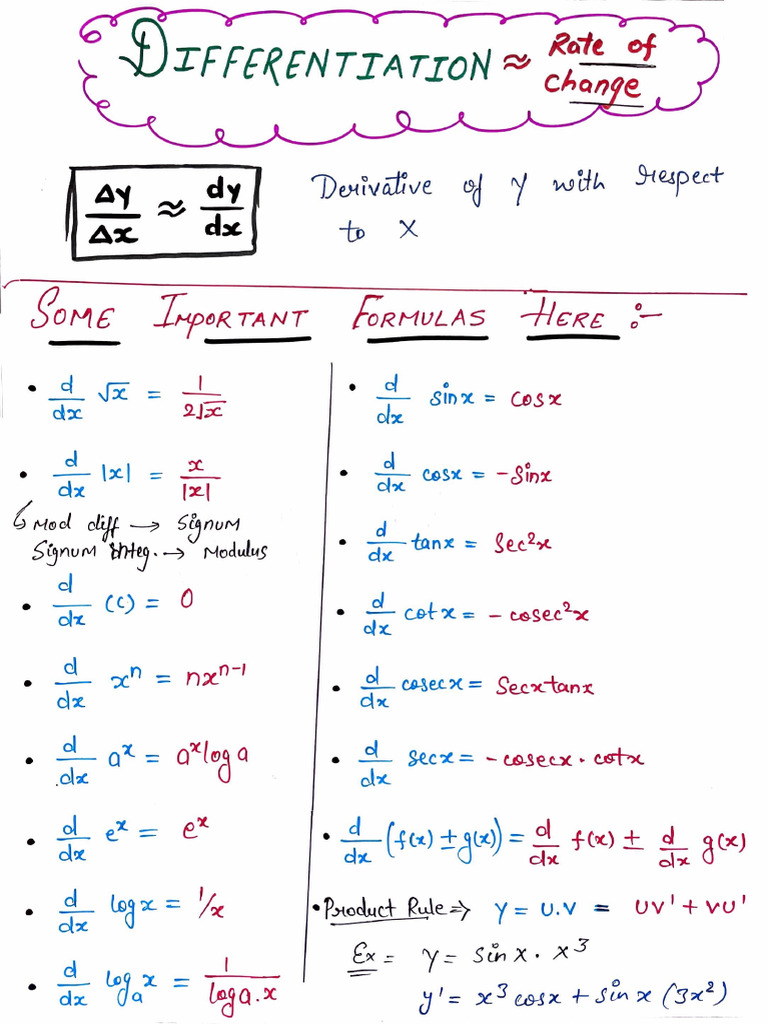 DIFFERENTIATION ≈ Rate of change
Δy/Δx ≈ dy/dx
Derivative of y with respect
to x
SOME IMPORTANT FORMULAS HERE :-
• d/dx √x = 1/2√x
• d/dx |x| = x/|x|
↳ Mod diff → Signum
Signum integ. → Modulus
• d/dx (c) = 0
• d/dx xⁿ = nxⁿ⁻¹
• d/dx aˣ = aˣ log a
• d/dx eˣ = eˣ
• d/dx log x = 1/x
• d/dx logₐx = 1/log a.x
• d/dx sinx = cosx
• d/dx cosx = -sinx
• d/dx tanx = sec²x
• d/dx cotx = -cosec²x
• d/dx cosecx = secxtanx
• d/dx secx = -cosecx·cotx
• d/dx (f(x) ± g(x)) = d/dx f(x) ± d/dx g(x)
• Product Rule ⇒ y = u.v = uv' + vu'
Ex = y = sinx · x³
y' = x³ cosx + sinx (3x²)